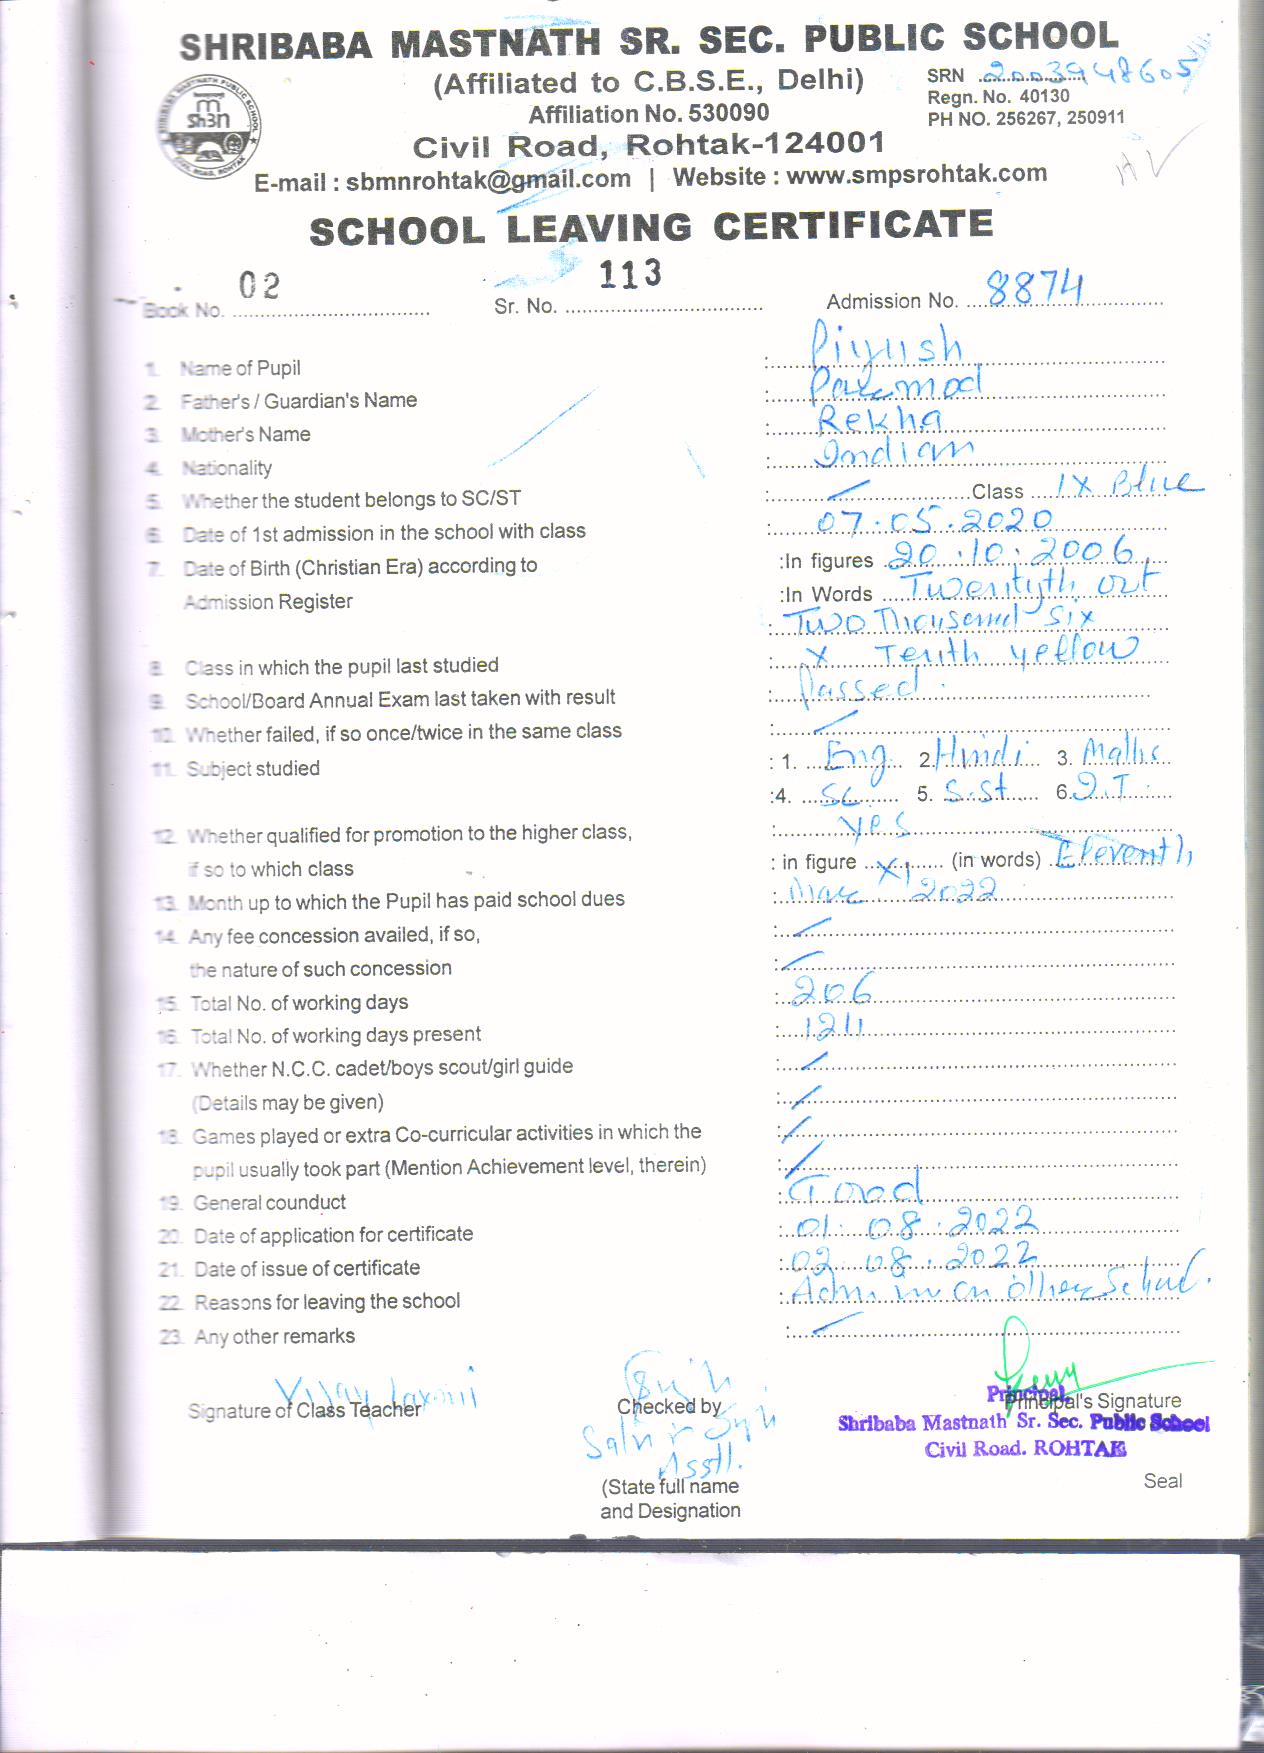 SHRIBABA MASTNATH SR. SEC. PUBLIC SCHOOL
(Affiliated to C.B.S.E., Delhi)
SRN 2003948605
Affiliation No. 530090
Regn. No. 40130
PH NO. 256267, 250911
Civil Road, Rohtak-124001
E-mail : sbmnrohtak@gmail.com | Website : www.smpsrohtak.com
SCHOOL LEAVING CERTIFICATE
Book No. 02 Sr. No. 113 Admission No. 8874
1. Name of Pupil : Piyush
2. Father's / Guardian's Name : Parmod
3. Mother's Name : Rekha
4. Nationality : Indian
5. Whether the student belongs to SC/ST : Class IX Blue
6. Date of 1st admission in the school with class : 07.05.2020
7. Date of Birth (Christian Era) according to :In figures 20.10.2006
Admission Register :In Words Twentyth oct
: Two Thousand six
8. Class in which the pupil last studied : X Tenth yellow
9. School/Board Annual Exam last taken with result : Passed
10. Whether failed, if so once/twice in the same class :
11. Subject studied : 1. Eng 2. Hindi 3. Maths
:4. Sc 5. S.St 6. I.T
12. Whether qualified for promotion to the higher class, : yes
if so to which class : in figure XI (in words) Eleventh
13. Month up to which the Pupil has paid school dues : Mar 2022
14. Any fee concession availed, if so, :
the nature of such concession :
15. Total No. of working days : 206
16. Total No. of working days present :
17. Whether N.C.C. cadet/boys scout/girl guide :
(Details may be given) :
18. Games played or extra Co-curricular activities in which the :
pupil usually took part (Mention Achievement level, therein) :
19. General counduct : Good
20. Date of application for certificate : 01.08.2022
21. Date of issue of certificate : 02.08.2022
22. Reasons for leaving the school : Adm. in an other School.
23. Any other remarks :
Vijay Laxmi
Signature of Class Teacher Checked by Principal's Signature
Principal
Shribaba Mastnath Sr. Sec. Public School
Civil Road. ROHTAK
Asstt.
(State full name
and Designation
Seal